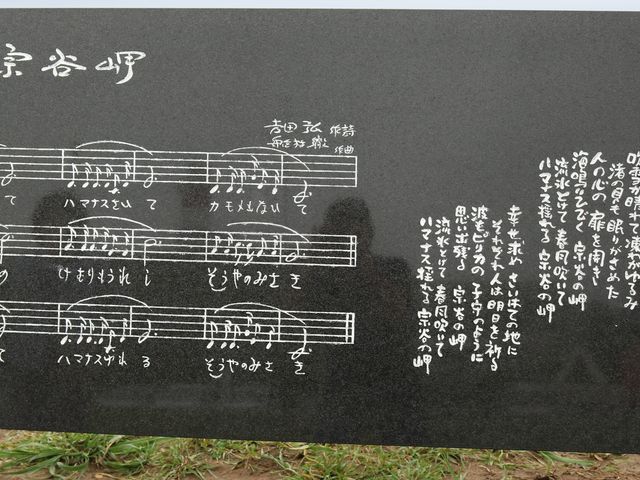 宗谷岬
吉田弘 作詩
作曲
て ハマナスさいて カモメもないて
の けむりもうれし そうやのみさき
て ハマナスゆれる そうやのみさき
吹雪が晴れて凍れがゆるみ
渚の貝も眠りがさめた
人の心の扉を開き
海鳴りひびく宗谷の岬
流氷とけて春風吹いて
ハマナス揺れる宗谷の岬
幸せ求めさいはての地に
それぞれ人は明日を祈る
波もピリカの子守のように
思い出残る宗谷の岬
流氷とけて春風吹いて
ハマナス揺れる宗谷の岬